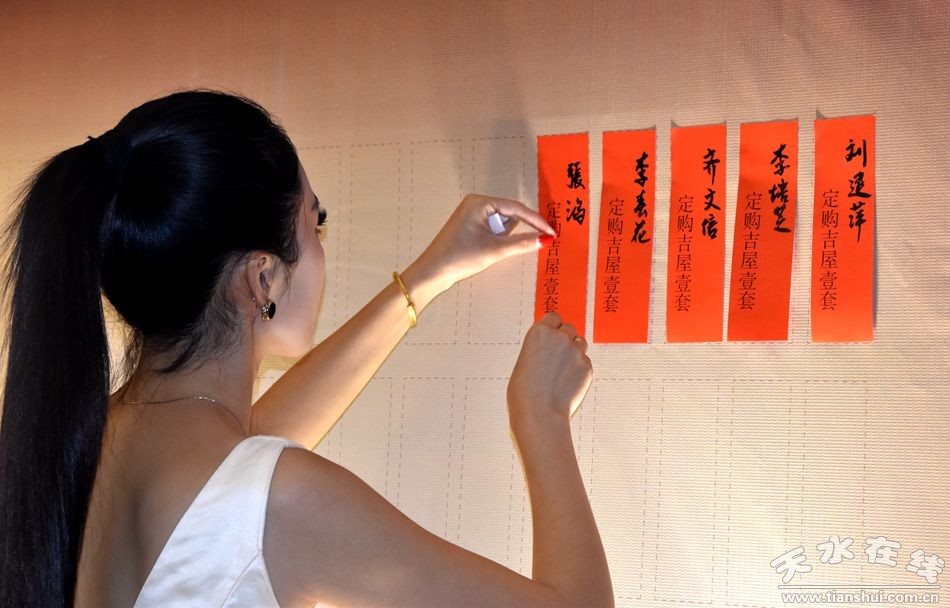 刘莲萍
定购吉屋壹套
李培芝
定购吉屋壹套
齐文倍
定购吉屋壹套
李春花
定购吉屋壹套
張滔
定购吉屋壹套
天水在线
www.tianshui.com.cn